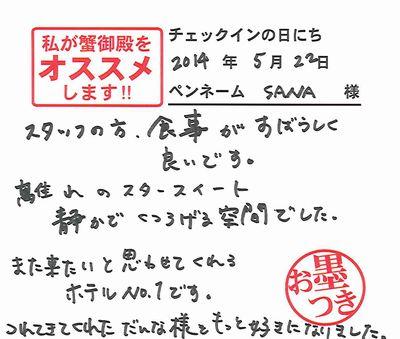 私が蟹御殿を
オススメ
します!!
チェックインの日にち
2014 年 5月 22日
ペンネーム SANA 様
スタッフの方、食事がすばらしく
良いです。
高佳れのスタースイート
静かで くつろげる空間でした。
また来たいと思わせてくれる
ホテルNo.1です。
お墨つき
つれてきてくれた だんな様ともっと好きになりました。